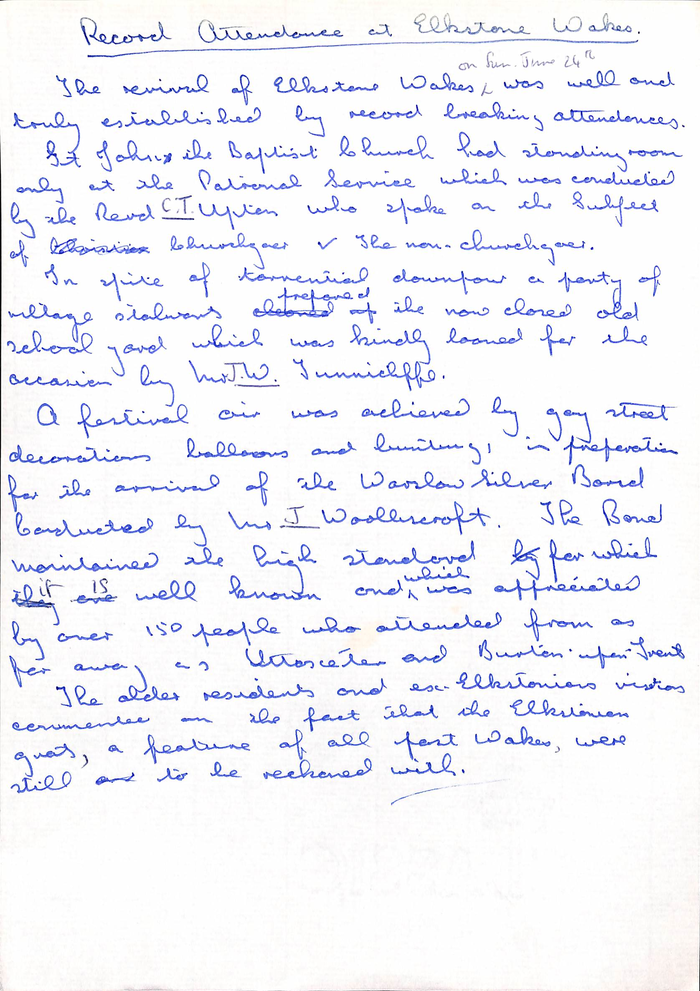 Record Attendance at Elkstone Wakes.
on Sun. June 24th
The revival of Elkstone Wakes was well and
truly established by record breaking attendances.
St John the Baptist Church had standing room
only at the Patronal Service which was conducted
by the Revd C.T. Upton who spoke on the Subject
of Churchgoer v The non-churchgoer.
In spite of torrential downpour a party of
prepared
village stalwarts cleaned up the now closed old
school yard which was kindly loaned for the
occasion by Mr J.W. Tunnicliffe.
A festival air was achieved by gay street
decorations balloons and bunting, in preparation
for the arrival of the Warslow Silver Band
Conducted by Mr J Woolliscroft. The Band
maintained the high standard by for which
it is which
they are well known and was appreciated
by over 150 people who attended from as
far away as Uttoxeter and Burton-upon-Trent
The older residents and ex-Elkstonians visitors
commented on the fact that the Elkstonian
gnats, a feature of all past Wakes, were
still to be reckoned with.